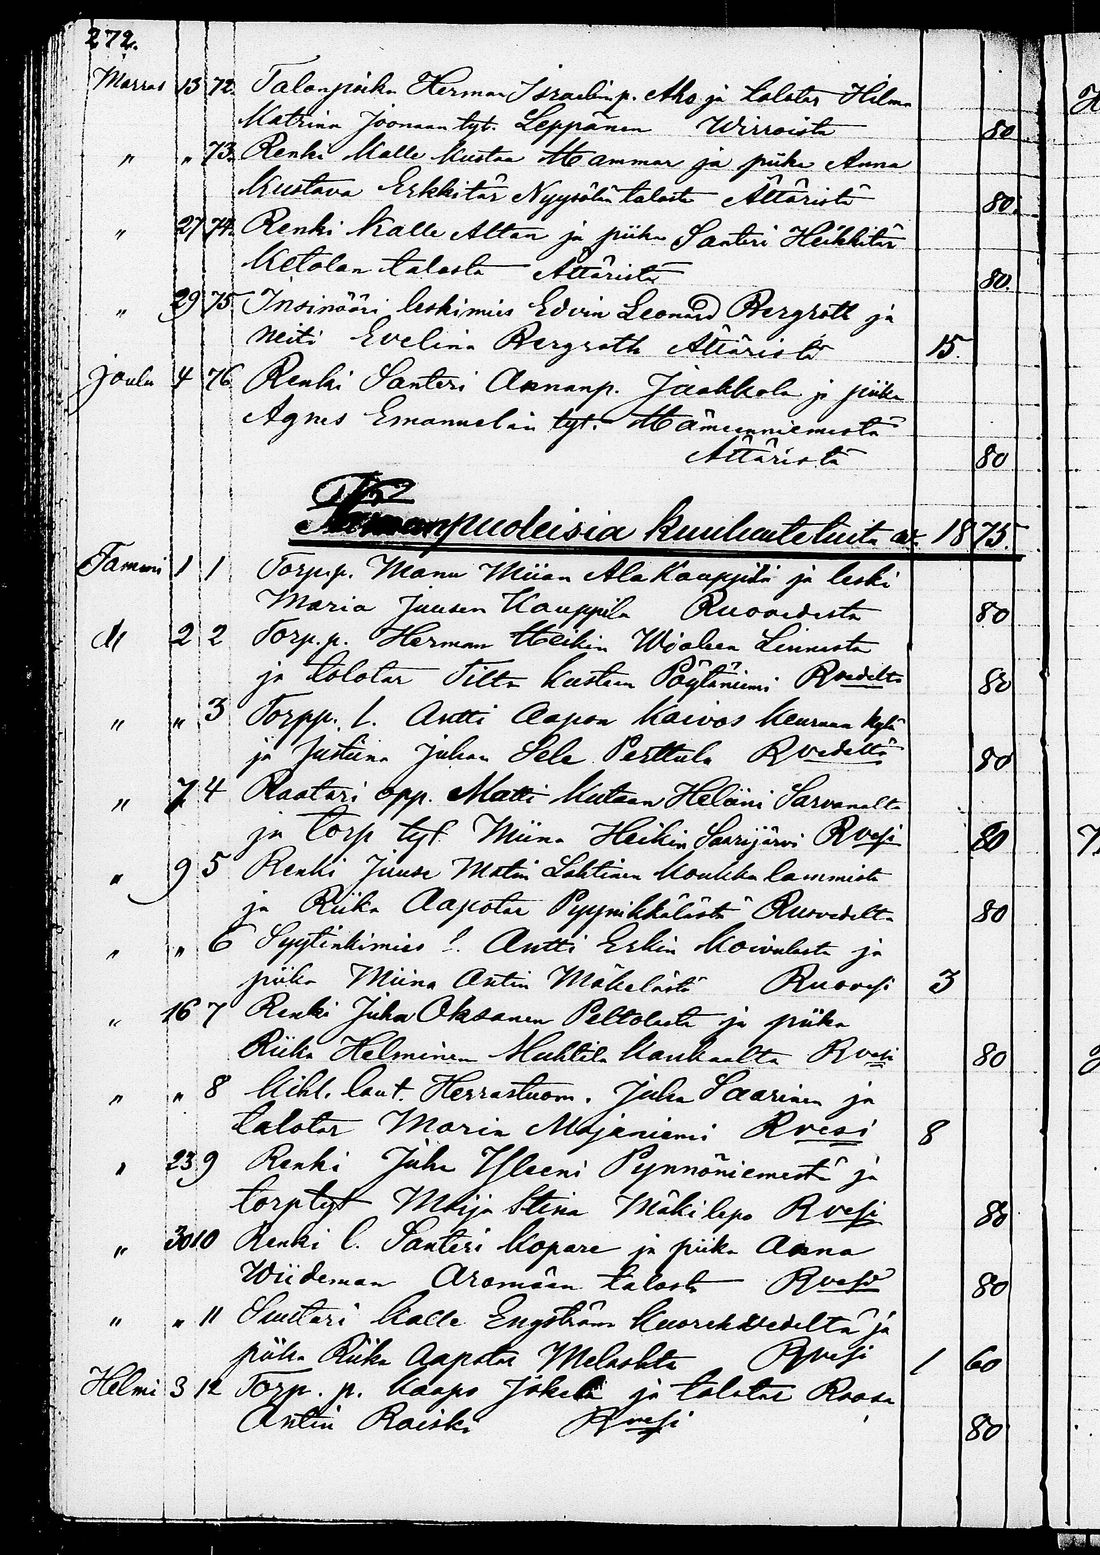 272.
Marras 13 72. Talonpoika Herman Israelin p. Aho ja talotar Hilma
Katrina Joonaan tyt. Leppänen Wirroista 80
" " 73. Renki Kalle Kustaa Hammar ja piika Anna
Kustava Erkkitär Nyysölän talosta Ättäristä 80.
" 27 74. Renki Kalle Altan ja piika Santeri Heikkitär
Ketolan talosta Ättäristä 80.
" 29 75. Insinööri leskimies Edvin Leonard Bergroth ja
Neiti Evelina Bergroth Ättäristä 15.
Joulu 4 76 Renki Santeri Annanp. Jaakkola ja piika
Agnes Emanuelin tyt. Hämeenniemestä
Ättäristä 80
puoleisia kuulutetuita av. 1875.
Tammi 1 1 Torp.p. Manu Miian Ala Kauppila ja leski
Maria Juusen Kauppila Ruovedestä 80
" 2 2 Torp.p. Herman Heikin Linnusta
ja talotar Tilta Kustaan Pöytäniemi Rvedeltä 80
" " 3 Torpp. l. Antti Aapon Koivos Keuruun kylä
ja Justiina Juhan Sele Perttula Rvedeltä 80
" 7 4 Raatari opp. Matti Kustaan Heleini
ja torp tyt. Miina Heikin Saarijärvi Rvesi 80
" 9 5 Renki Juuse Matin Lahtinen Koukkulammista
ja Riika Aapotar Pyynikkälästä Ruovedeltä 80
" " 6 Syytinkimies l. Antti Erkin Koivulasta ja
piika Miina Antin Mäkelästä Ruovesi 3
" 16 7 Renki Juha Oksanen Peltolasta ja piika
Riika Helminen Muhtila Kaukaalta Rvesi 80
" " 8 Kihl. laut. Herrastuom. Juha Saarinen ja
talotar Maria Majaniemi Rvesi 8
" 23 9 Renki Juha Yleeni Pynnöniemestä ja
torp tyt Maija Stina Mäkilepo Rvesi 80
" 30 10 Renki l. Santeri Kopare ja piika Anna
Wiideman Aromään talosta Rvesi 80
" " 11 Suutari Kalle Engström Kuorehvedeltä ja
piika Riika Aapotar Rvesi 1 60
Helmi 3 12 Torp. p. Kaapo Jokela ja talotar Roosa
Antin Raiski Rvesi 80